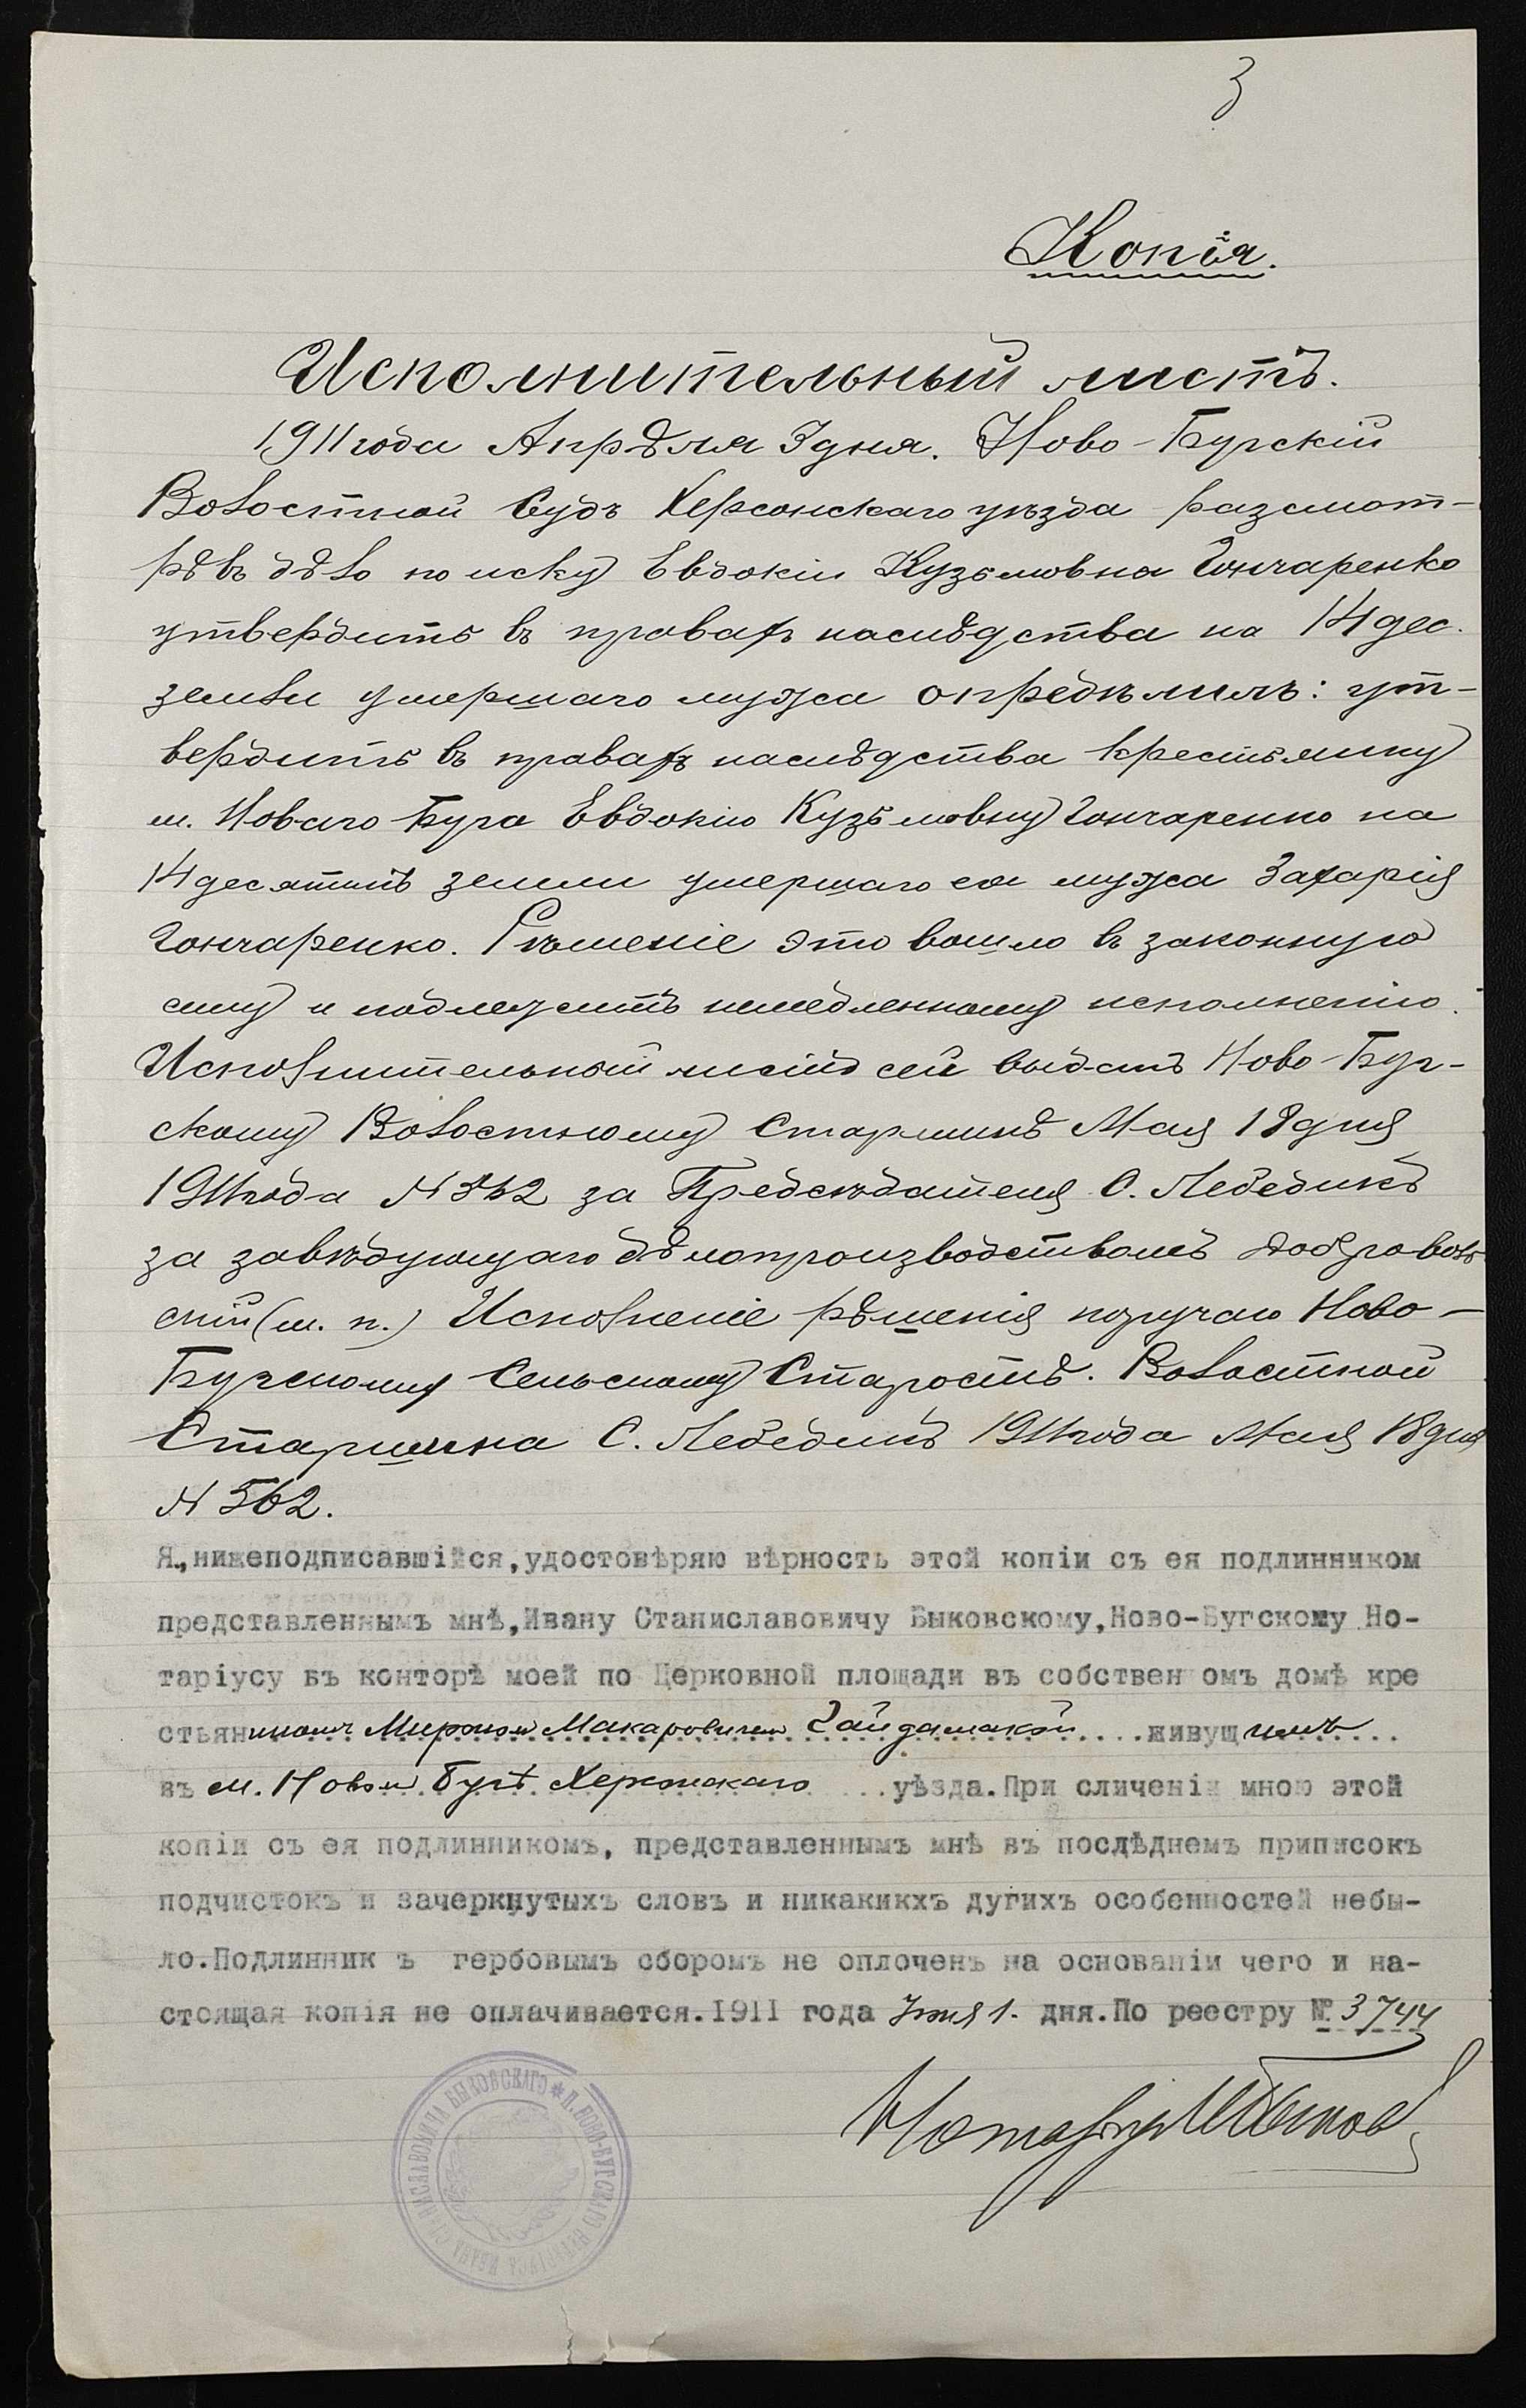 3
Копія.
Исполнительный листъ.
1911 года Апрѣля 3 дня. Ново-Бугскій
Волостной Судъ Херсонскаго уѣзда разсмот-
рѣвъ дѣло по иску Евдокіи Кузьмовна Гончаренко
утвердить въ правахъ наслѣдства на 14 дес.
земли умершаго мужа опредѣлилъ: ут-
вердить въ правахъ наслѣдства крестьянку
м. Новаго Буга Евдокію Кузьмовну Гончаренко на
14 десятинъ земли умершаго ея мужа Захарія
Гончаренко. Рѣшеніе это вошло въ законную
силу и подлежитъ немедленному исполненію.
Исполнительный листъ сей выданъ Ново-Буг-
скому Волостному Старшинѣ Мая 18 дня
1911 года N 562 за Предсѣдателя С. Лебединъ
за завѣдующаго дѣлопроизводствомъ Доброволь
скій (м. п.) Исполненіе рѣшенія поручаю Ново-
Бугскому Сельскому Старостѣ. Волостной
Старшина С. Лебединъ 1911 года Мая 18 дня
N 562.
Я,нижеподписавшійся,удостовѣряю вѣрность этой копіи съ ея подлинником
представленнымъ мнѣ,Ивану Станиславовичу Быковскому,Ново-Бугскому Но-
таріусу въ конторѣ моей по Церковной площади въ собствен омъ домѣ кре
стьяниномъ Мирономъ Макаровичем Гайдамакой....живущимъ...
въ м. Новом Бугѣ Херсонскаго ...уѣзда.При сличеніи мною этой
копіи съ ея подлинникомъ, представленнымъ мнѣ въ послѣднемъ приписокъ
подчистокъ и зачеркнутыхъ словъ и никакихъ дугихъ особенностей небы-
ло.Подлинник ъ гербовымъ сборомъ не оплоченъ на основаніи чего и на-
стоящая копія не оплачивается.1911 года Іюня 1. дня.По реестру №.3744
Нотаріусъ ИБыков
П. НОВО-БУГСКАГО НОТАРІУСА ИВАНА СТАНИСЛАВОВИЧА БЫКОВСКАГО